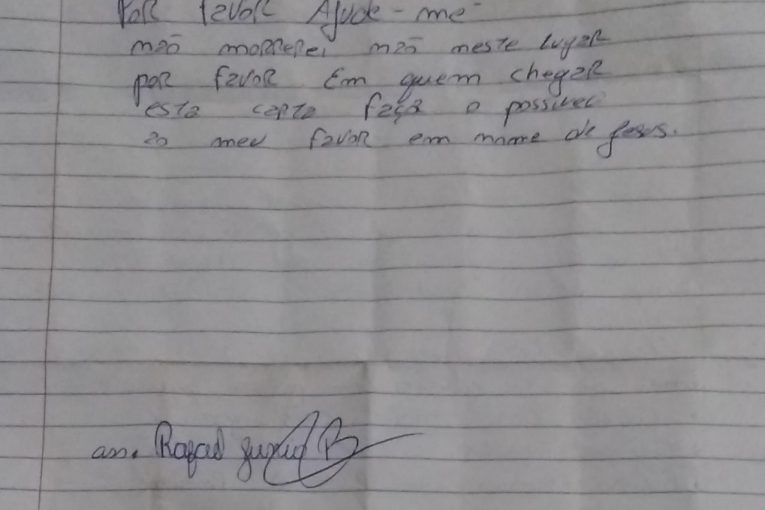 Por favor Ajude-me
não morrerei não neste lugar
por favor Em quem chegar
esta carta faça o possivel
ao meu favor em nome de Jesus.
ass. Rafael Junior B